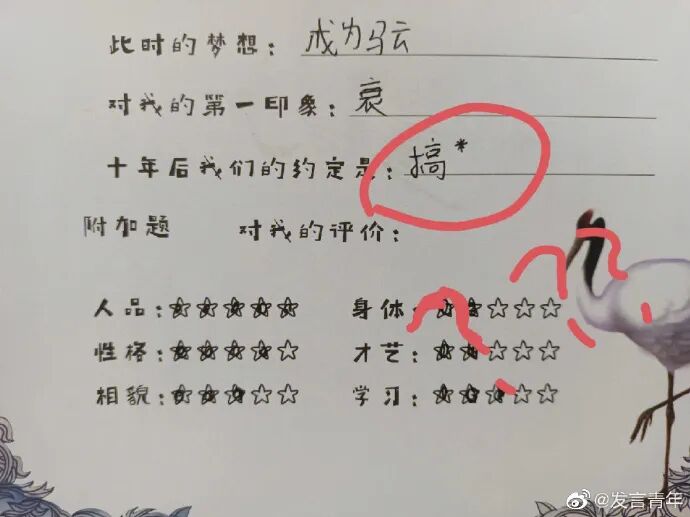 此时的梦想：成为马云
对我的第一印象：衰
十年后我们的约定是：搞*
附加题 对我的评价：
人品：★★★★★ 身体：★★☆☆☆
性格：★★★★☆ 才艺：★★☆☆☆
相貌：★★★☆☆ 学习：★★★☆☆
@发言青年